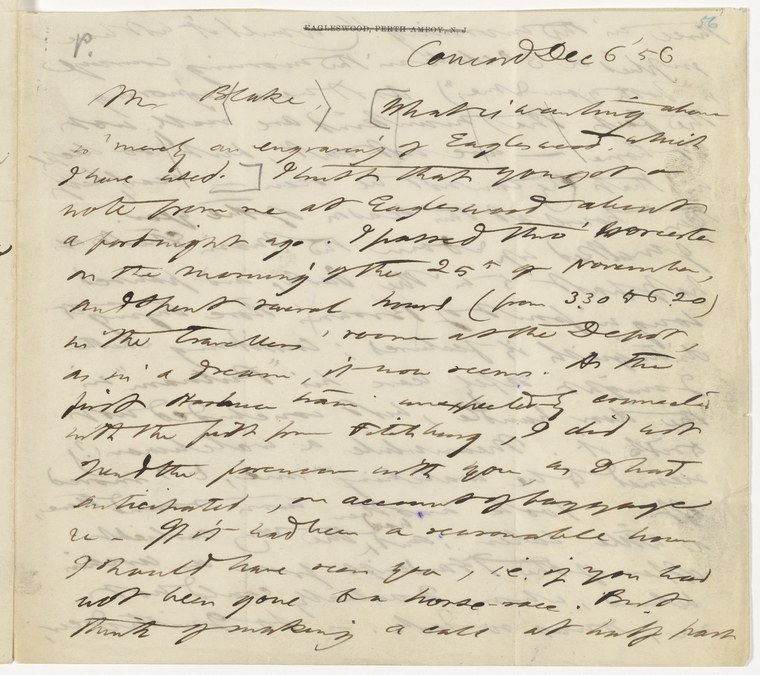 56
P.
EAGLESWOOD, PERTH AMBOY, N. J.
Concord Dec 6 '56
Mr Blake, [What is wanting above
is merely an engraving of Eagleswood, which
I have used.] I trust that you got a
note from me at Eagleswood about
a fortnight ago. I passed thro' Worcester
on the morning of the 25th of November,
and spent several hours (from 3.30 to 6.20)
in the travellers' room at the Depot,
as in a dream, it now seems. As the
first Harlem train unexpectedly connected
with the first from Fitchburg, I did not
spend the forenoon with you, as I had
anticipated, on account of baggage
&c – If it had been a seasonable hour
I should have seen you, i.e. if you had
not been gone to a horse-race. But
think of making a call at half past